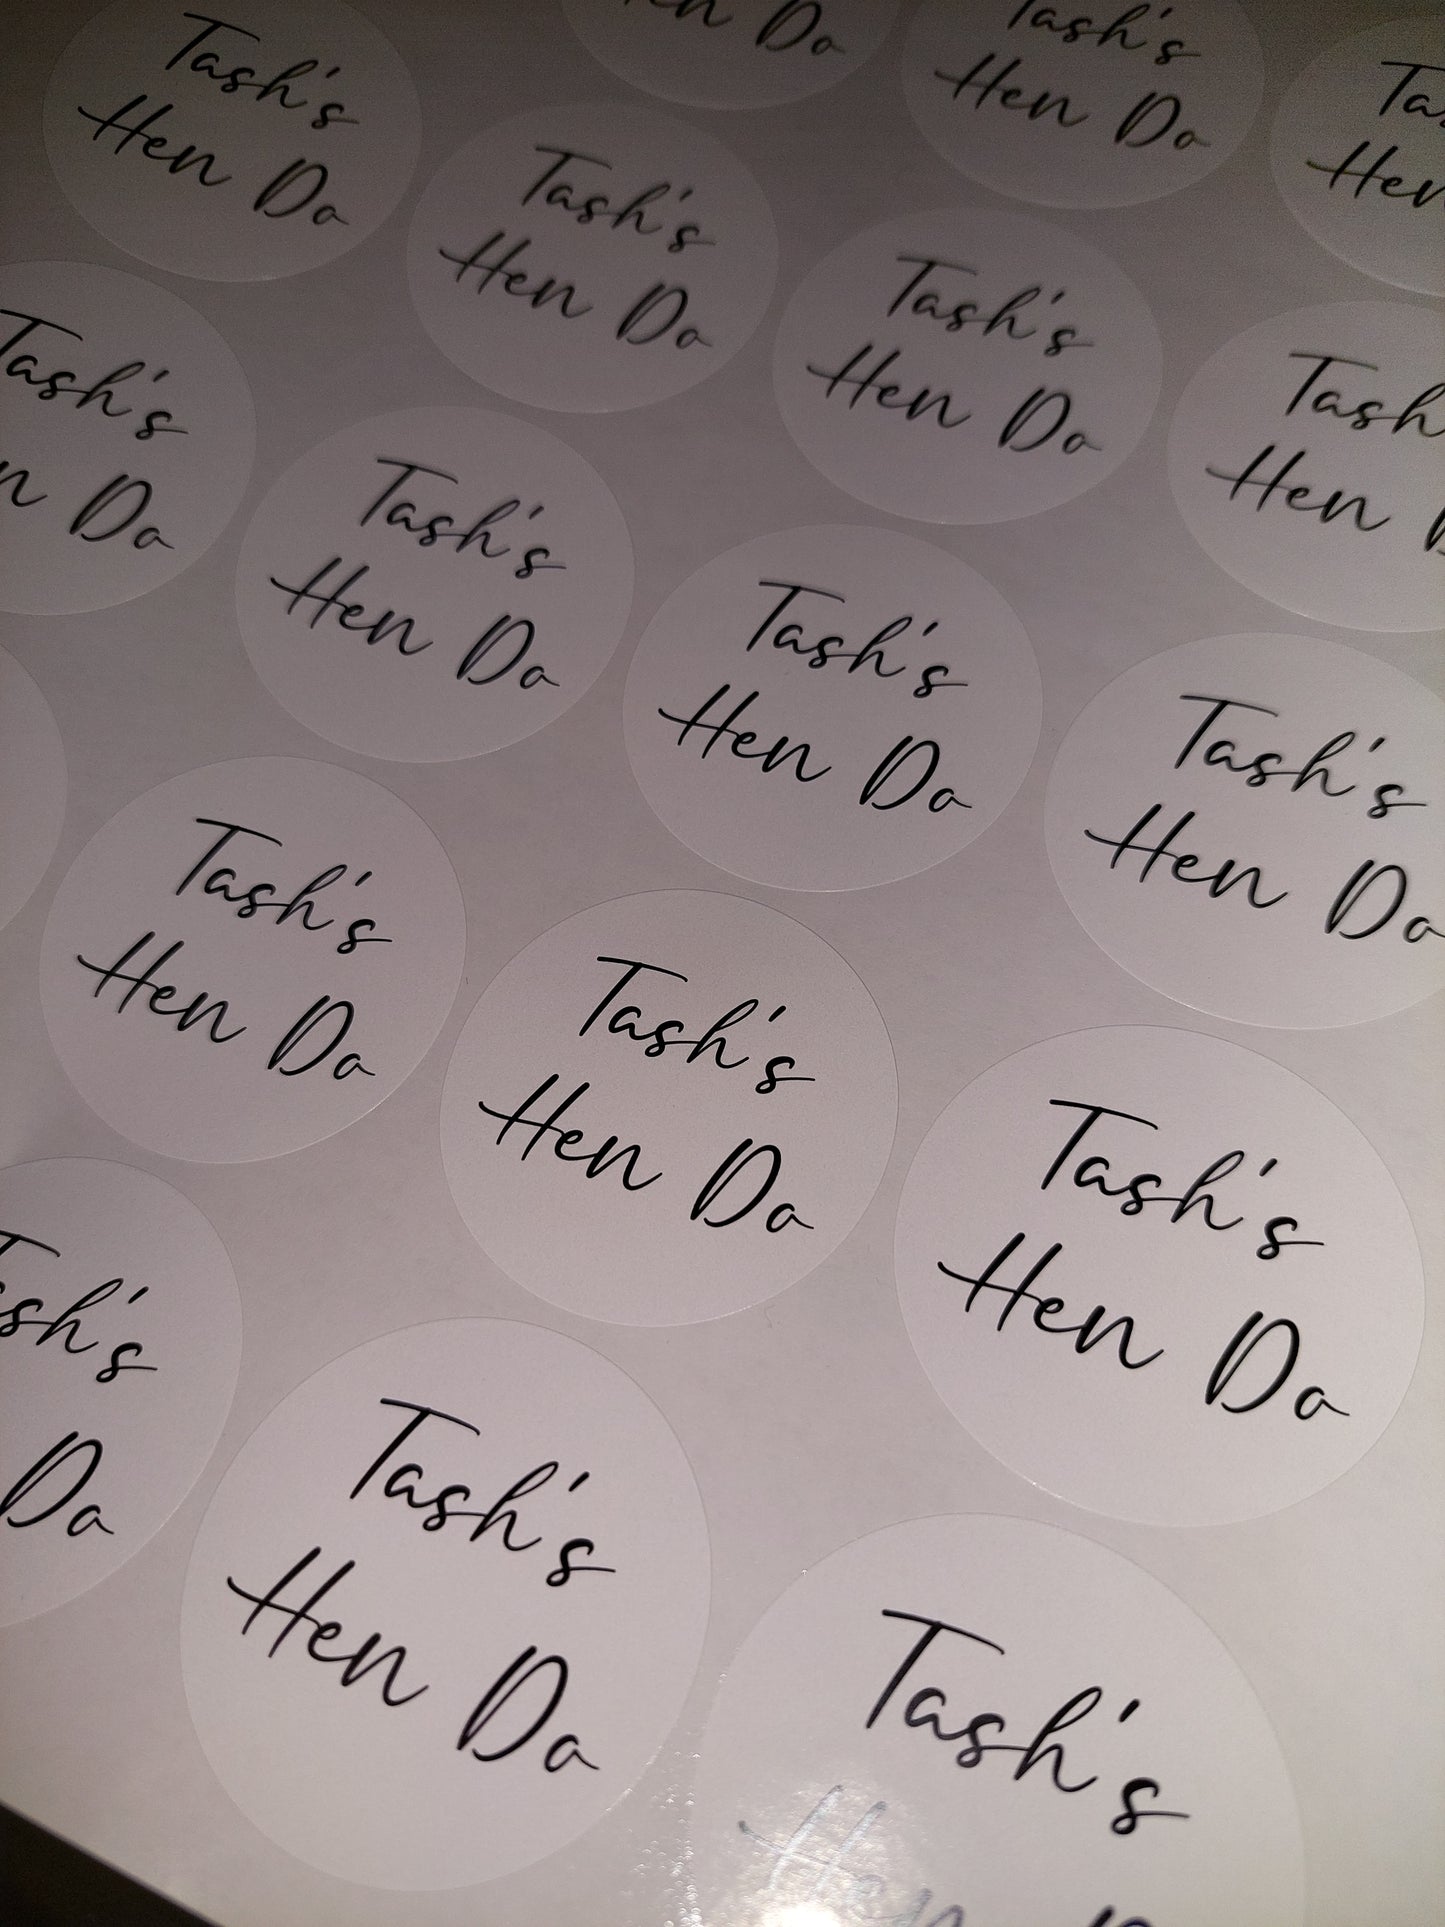 Tash's
Hen Do
n Do
Tash's
Hen Do
Ta
Hen
Tash's
Hen Do
Tash's
Hen Do
Tash
Hen D
Tash's
n Do
Tash's
Hen Do
Tash's
Hen Do
Tash's
Hen Do
Tash's
Hen Do
Tash's
Hen Do
Tash's
Hen Do
sh's
Do
Tash's
Hen Do
Tash's
Hen